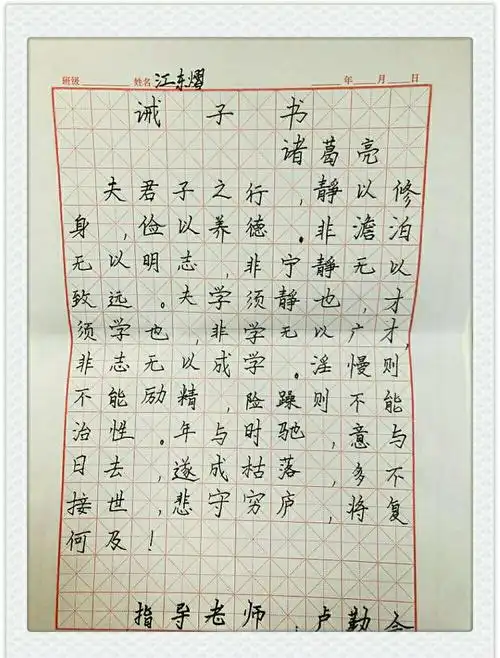 班级 姓名 江东熠 年 月 日
诫子书
诸葛亮
夫君子之行,静以修
身,俭以养德。非澹泊
无以明志,非宁静无以
致远。夫学须静也,才
须学也,非学无以广才,
非志无以成学。淫慢则
不能励精,险躁则不能
治性。年与时驰,意与
日去,遂成枯落,多不
接世,悲守穷庐,将复
何及!
指导老师:卢勤